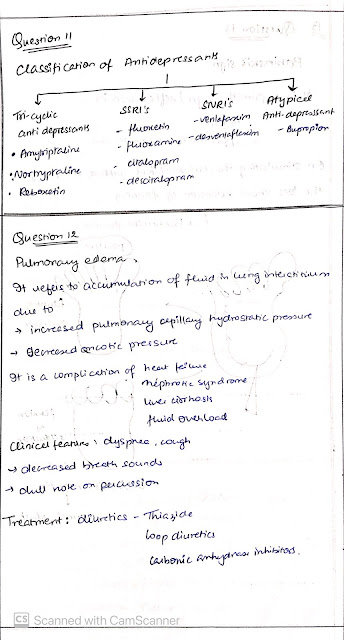 Question 11
Classification of Antidepressants
Tri-cyclic
anti depressants
• Amytriptaline
• Nortryptaline
• Reboxetin
SSRI's
- fluoxetin
- fluoxamine
- citalopram
- descitalopram
SNRI's
- venlafaxim
- desvenlafaxim
Atypical
Anti-depressant
- Bupropion
Question 12
Pulmonary edema,
It refers to accumulation of fluid in lung interctitium
due to :
→ increased pulmonary capillary hydrostatic pressure
→ decreased oncotic pressure
It is a complication of heart failure
nephrotic syndrome
liver cirrhosis
fluid overload
Clinical features : dyspnea, cough
→ decreased breath sounds
→ dull note on percussion
Treatment : diuretics - Thiazide
loop diuretics
Carbonic anhydrase inhibitors.
CS Scanned with CamScanner